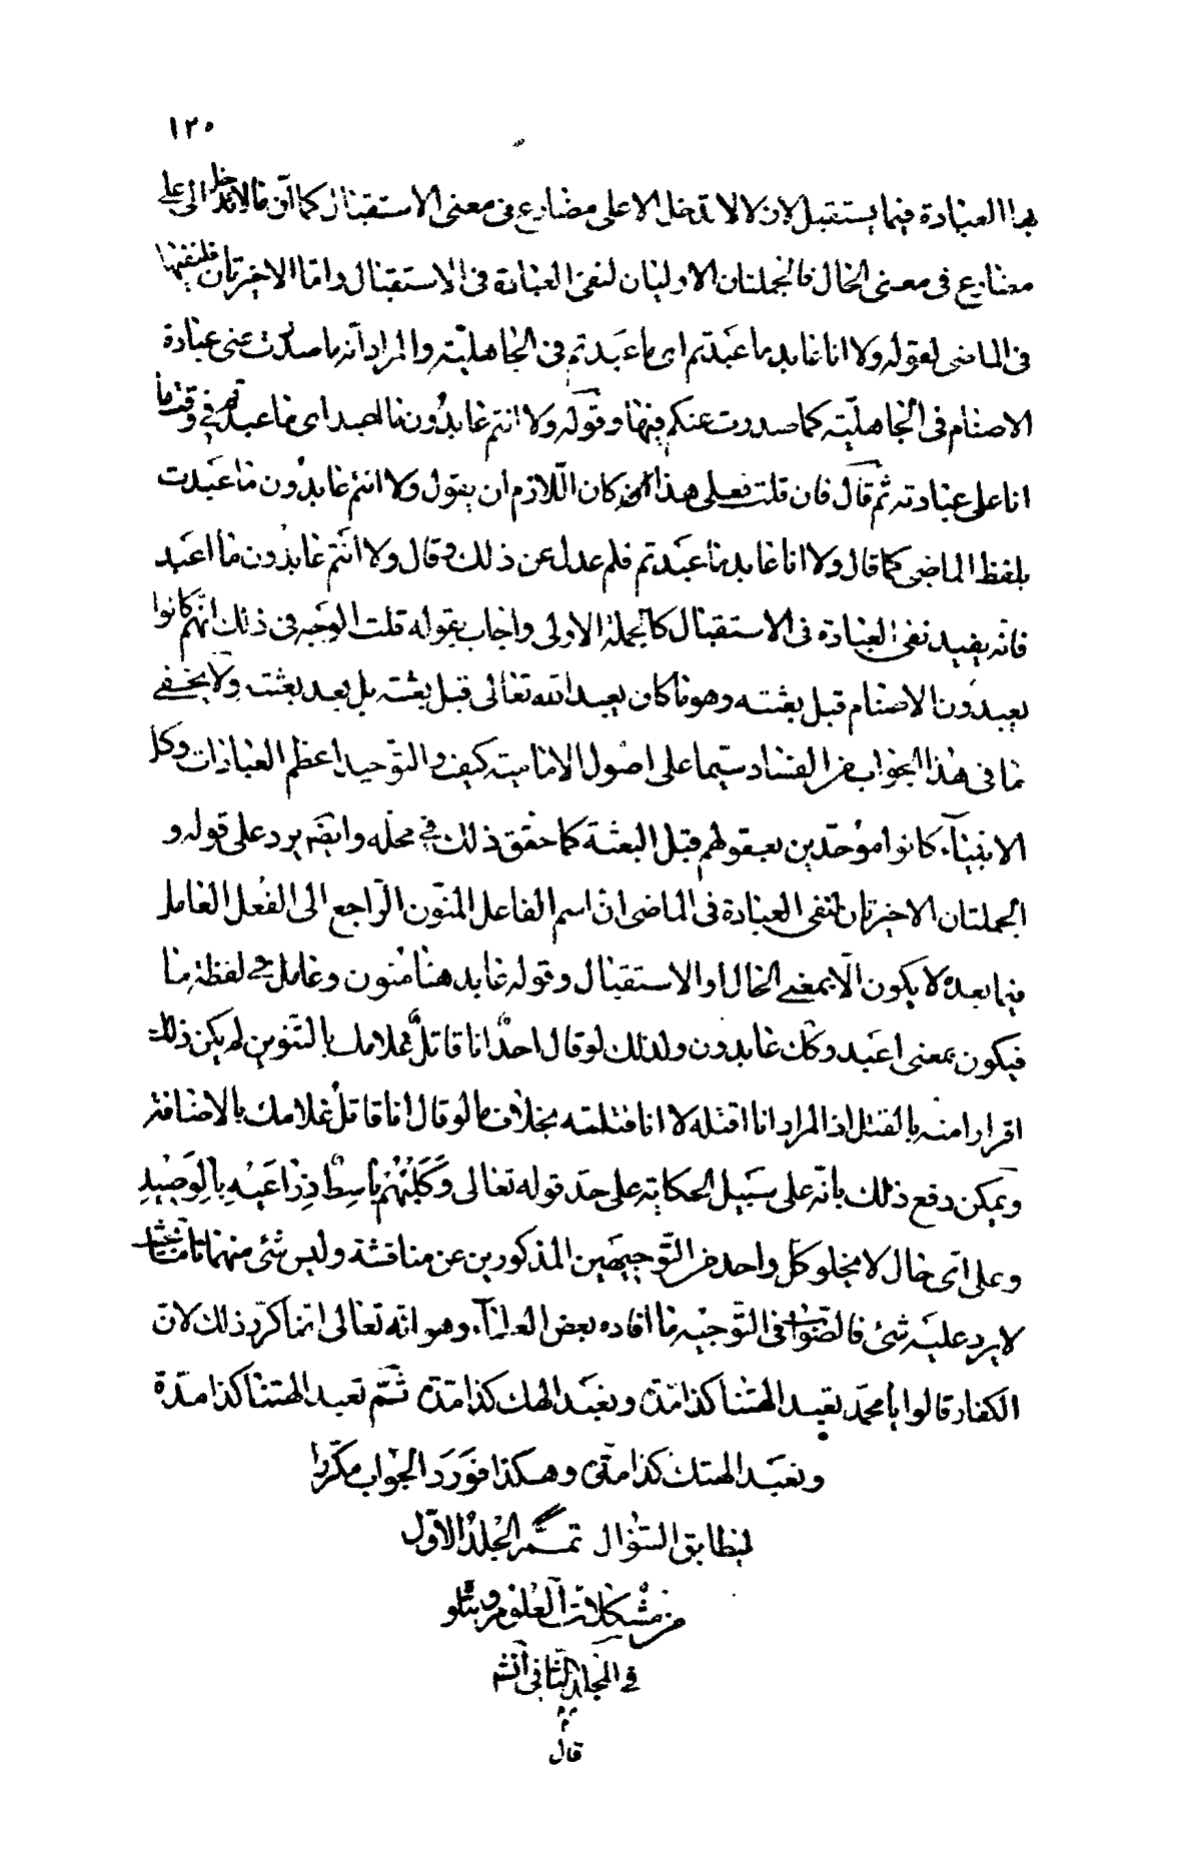 ١٢٠
بها العبادة فيما يستقبل لان لا لا تدخل الا على مضارع فى معنى الاستقبال كما ان ما لا تدخل الا على
مضارع فى معنى الحال فالجملتان الاوليان لنفى العبادة فى الاستقبال واما الاخيرتان فلنفيها
فى الماضى لقوله ولا انا عابد ما عبدتم اى ما عبدتم فى الجاهلية والمراد انه ما صدرت عنى عبادة
الاصنام فى الجاهلية كما صدرت عنكم فيها وقوله ولا انتم عابدون ما اعبد اى ما عبدتم فى وقت ما
انا على عبادته ثم قال فان قلت فعلى هذا كان اللازم ان يقول ولا انتم عابدون ما عبدت
بلفظ الماضى كما قال ولا انا عابد ما عبدتم فلم عدل عن ذلك وقال ولا انتم عابدون ما اعبد
فانه يفيد نفى العبادة فى الاستقبال كالجملة الاولى واجاب بقوله قلت الوجه فى ذلك انهم كانوا
يعبدون الاصنام قبل بعثته وهو ما كان يعبد الله تعالى قبل بعثته بل بعد بعثته ولا يخفى
ما فى هذا الجواب من الفساد سيما على اصول الامامية كيف والتوحيد اعظم العبادات وكل
الانبياء كانوا موحدين بعقولهم قبل البعثة كما حقق ذلك فى محله وايضا يرد على قوله و
الجملتان الاخيرتان لنفى العبادة فى الماضى ان اسم الفاعل المنون الراجع الى الفعل العامل
فيما بعده لا يكون الا بمعنى الحال او الاستقبال وقوله عابد هنا منون وعامل فى لفظة ما
فيكون بمعنى اعبد وكذا عابدون ولذلك لو قال احد انا قاتل غلامك بالتنوين لم يكن ذلك
اقرارا منه بالقتل اذ المراد انا اقتله لا انا قتلته بخلاف ما لو قال انا قاتل غلامك بالاضافة
ويمكن دفع ذلك بانه على سبيل الحكاية على حد قوله تعالى وَكَلْبُهُمْ بَاسِطٌ ذِرَاعَيْهِ بِالْوَصِيدِ
وعلى اى حال لا يخلو كل واحد من التوجيهين المذكورين عن مناقشة وليس شئ منهما تاما بحيث
لا يرد عليه شئ فالصواب فى التوجيه ما افاده بعض العلماء وهو انه تعالى انما كرر ذلك لان
الكفار قالوا يا محمد تعبد الهتنا كذا مدة ونعبد الهك كذا مدة ثم تعبد الهتنا كذا مدة
ونعبد الهتك كذا مدة وهكذا فورد الجواب مكررا
ليطابق السؤال تم الجلد الاول
من مشكلات العلوم ويتلو
فى المجلد الثانى انش
قال